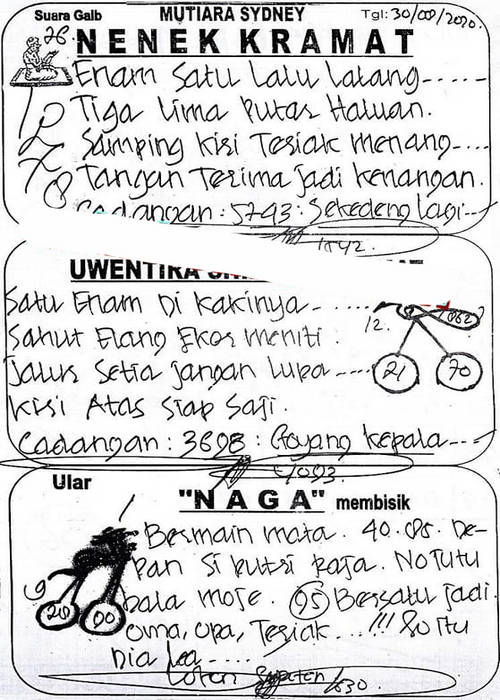 Suara Gaib MUTIARA SYDNEY Tgl: 30/09/2020.
28. NENEK KRAMAT
Enam Satu Lalu Lalang.....
Tiga Lima Putar Haluan.
Samping Kiri Teriak menang....
Tangan Terima jadi kenangan.
Cadangan: 5743: Sekedeng lagi...
UWENTIRA
Satu Enam Di Kakinya.......
Sahut Elang Ekor meniti.
12.
Jalur Setia jangan lupa....
21 70
Kiri Atas Siap Saji.
Cadangan: 3698: Goyang kepala...
Ular
"NAGA" membisik
Bermain mata. 40. De-
pan si putri raja. No Tutu
pala more. 95 Bersatu jadi.
9
20 00
oma, opa, Teriak...!!! 80 itu
Dia